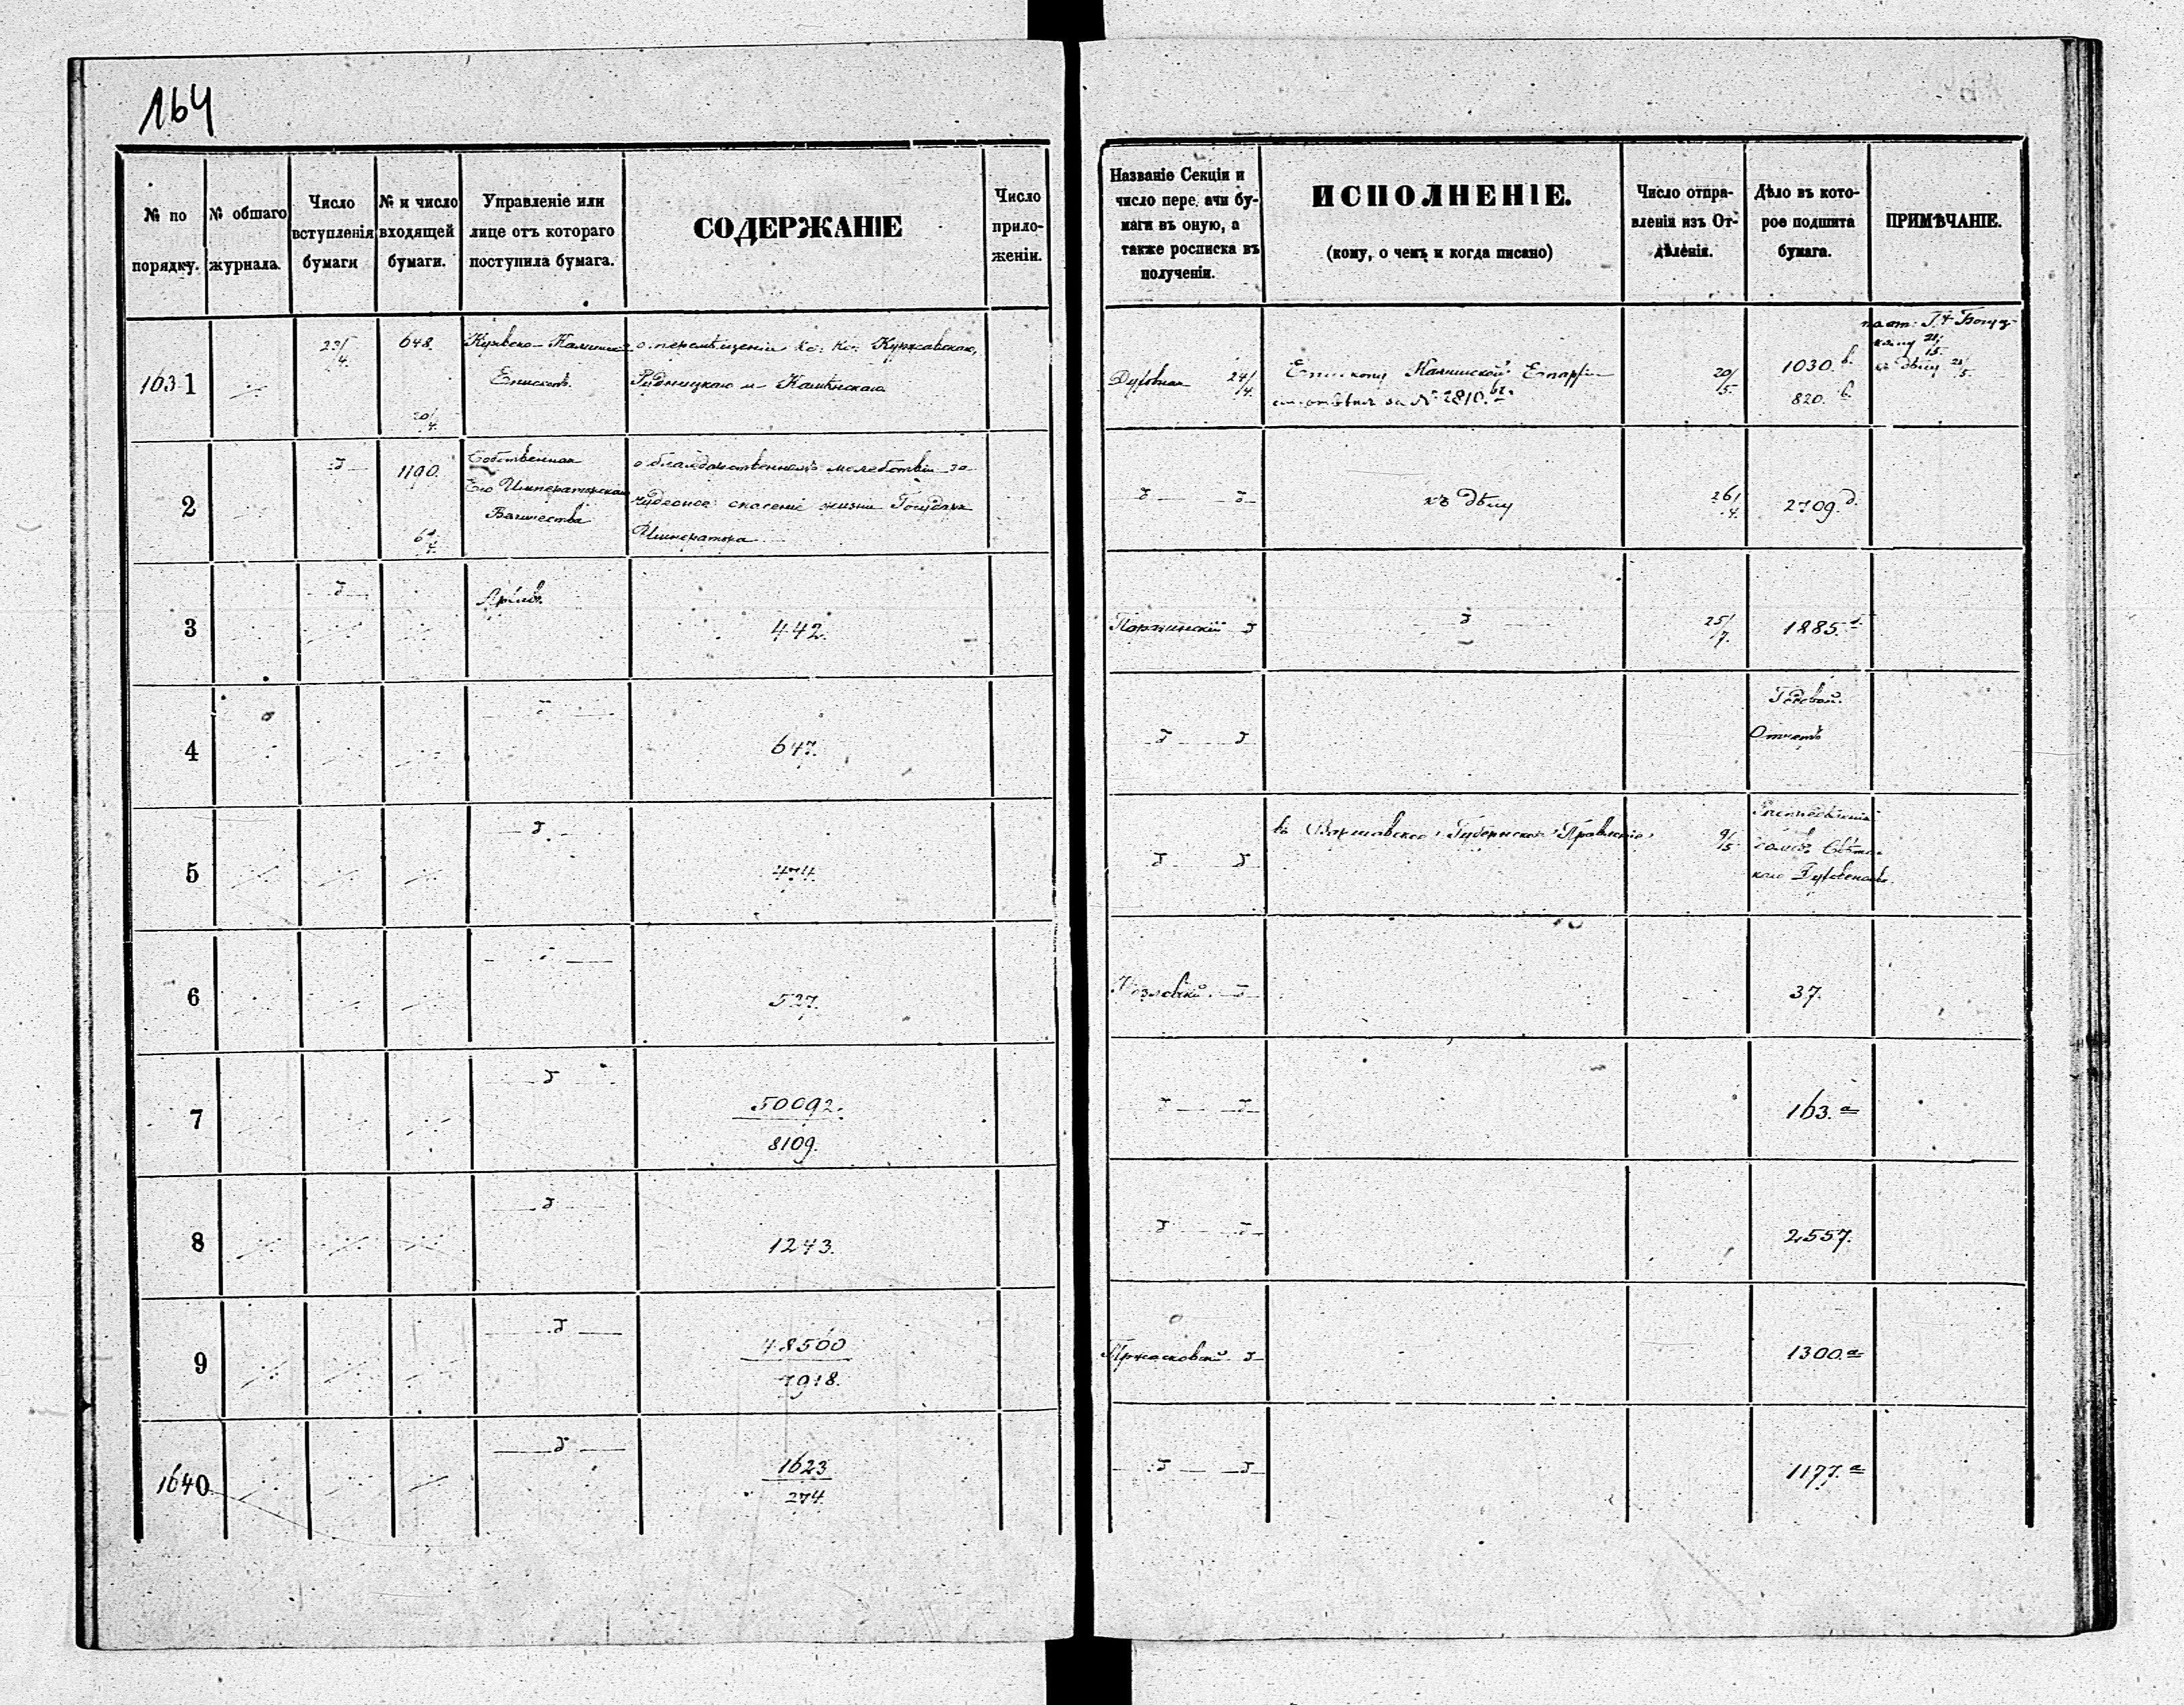 164
№ по порядку.
№ общаго журнала.
Число вступленія бумаги
№ и число входящей бумаги.
Управленіе или лице отъ котораго поступила бумага.
СОДЕРЖАНІЕ
Число прило-женіи.
Названіе Секціи и число пере ачи бу-маги въ оную, а также росписка въ полученіи.
ИСПОЛНЕНІЕ.
(кому, о чемъ и когда писано)
Число отпра-вленія изъ От-дѣленія.
Дѣло въ кото-рое подшита бумага.
ПРИМѢЧАНІЕ.
1631
23/4
648.
20/4.
Епископъ.
о перемѣщеніи Кс: Кс:
Рудницкаго и Каминскаго
Духовная 24/4.
Епископу Калишской Епархіи
за № 2810.
20/5.
1030.
820.
2
д
1190.
6/4.
Собственная
Его Императорскаго
Величества
о благодарственномъ молебствіи за
чудесное спасеніе жизни Государя
Императора
д д
къ дѣлу
26/4.
2709. д.
3
д
Архивъ.
442.
д
д
25/7.
1285.
4
647.
д д
Годовой.
Отчетъ
5
д
474.
д д
въ Варшавское Губернское Правленіе
9/5
6
527.
д
37.
7
д
50092.
8109.
д д
163. а
8
д
1243.
д д
2557.
9
д
48500
7918.
д
1300. а
1640
д
1623
274.
д д
1177. а